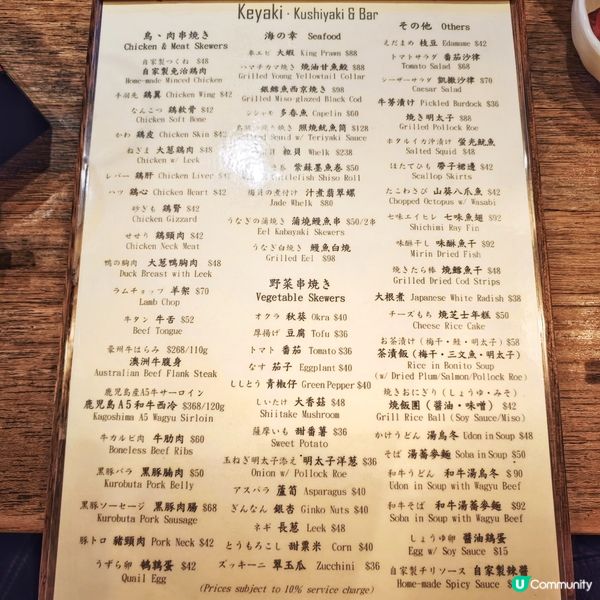 Keyaki · Kushiyaki & Bar
鳥、肉串焼き
Chicken & Meat Skewers
自家製つくね $48
自家製免治鶏肉
Home-made Minced Chicken
手羽先 鶏翼 Chicken Wing $42
なんこつ 鶏軟骨 $42
Chicken Soft Bone
かわ 鶏皮 Chicken Skin $42
ねぎま 大葱鶏肉 $48
Chicken w/ Leek
レバー 鶏肝 Chicken Liver $42
ハツ 鶏心 Chicken Heart $42
砂ぎも 鶏腎 $42
Chicken Gizzard
せせり 鶏頸肉 $42
Chicken Neck Meat
鴨の胸肉 大葱鴨胸肉 $48
Duck Breast with Leek
ラムチョップ 羊架 $70
Lamb Chop
牛タン 牛舌 $52
Beef Tongue
豪州牛はらみ $268/110g
澳洲牛腹身
Australian Beef Flank Steak
鹿児島産A5牛サーロイン
鹿児島A5和牛西冷 $368/120g
Kagoshima A5 Wagyu Sirloin
牛カルビ肉 牛肋肉 $60
Boneless Beef Ribs
黒豚バラ 黑豚腩肉 $50
Kurobuta Pork Belly
黒豚ソーセージ 黑豚肉腸 $68
Kurobuta Pork Sausage
豚トロ 豬頸肉 Pork Neck $42
うずら卵 鵪鶉蛋 $42
Quail Egg
海の幸 Seafood
車エビ 大蝦 King Prawn $88
ハマチカマ焼き 燒油甘魚鮫 $88
Grilled Young Yellowtail Collar
銀鱈魚西京燒き $98
Grilled Miso glazed Black Cod
シシャモ 多春魚 Capelin $60
照燒魷魚筒 $128
Squid w/ Teriyaki Sauce
粒貝 Whelk $238
紫蘇墨魚卷 $50
Cuttlefish Shiso Roll
煮付け 汁煮翡翠螺
Jade Whelk $80
うなぎの蒲焼き 蒲燒鰻魚串 $50/2串
Eel Kabayaki Skewers
うなぎ白焼き 鰻魚白燒
Grilled Eel $98
野菜串焼き
Vegetable Skewers
オクラ 秋葵 Okra $40
厚揚げ 豆腐 Tofu $36
トマト 番茄 Tomato $36
なす 茄子 Eggplant $40
ししとう 青椒仔 Green Pepper $40
しいたけ 大香菇 $48
Shiitake Mushroom
薩摩いも 甜番薯 $36
Sweet Potato
玉ねぎ明太子添え 明太子洋葱 $36
Onion w/ Pollock Roe
アスパラ 蘆筍 Asparagus $40
ぎんなん 銀杏 Ginko Nuts $40
ネギ 長葱 Leek $48
とうもろこし 甜粟米 Corn $40
ズッキーニ 翠玉瓜 Zucchini $36
(Prices subject to 10% service charge)
その他 Others
えだまめ 枝豆 Edamame $42
トマトサラダ 番茄沙律
Tomato Salad $68
シーザーサラダ 凱撒沙律 $70
Caesar Salad
牛蒡漬け Pickled Burdock $36
燒き明太子 $88
Grilled Pollock Roe
ホタルイカ沖漬け 螢光魷魚
Salted Squid $48
ほたてひも 帶子裙邊 $42
Scallop Skirts
たこわさび 山葵八爪魚 $42
Chopped Octopus w/ Wasabi
七味エイヒレ 七味魚翅 $92
Shichimi Ray Fin
味醂干し 味醂魚干 $92
Mirin Dried Fish
焼きたら棒 燒鱈魚干 $48
Grilled Dried Cod Strips
大根煮 Japanese White Radish $38
チーズもち 燒芝士年糕 $50
Cheese Rice Cake
お茶漬け (梅干・鮭・明太子) $58
茶漬飯 (梅干・三文魚・明太子)
Rice in Bonito Soup
(w/ Dried Plum/Salmon/Pollock Roe)
焼きおにぎり (しょうゆ・みそ)
燒飯團 (醤油・味噌) $42
Grill Rice Ball (Soy Sauce/Miso)
かけうどん 湯烏冬 Udon in Soup $48
そば 湯蕎麥麵 Soba in Soup $50
和牛うどん 和牛湯烏冬 $90
Udon in Soup with Wagyu Beef
和牛そば 和牛湯蕎麥麵 $92
Soba in Soup with Wagyu Beef
しょうゆ卵 醤油鶏蛋
Egg w/ Soy Sauce $15
自家製チリソース 自家製辣醬
Home-made Spicy Sauce
U Community